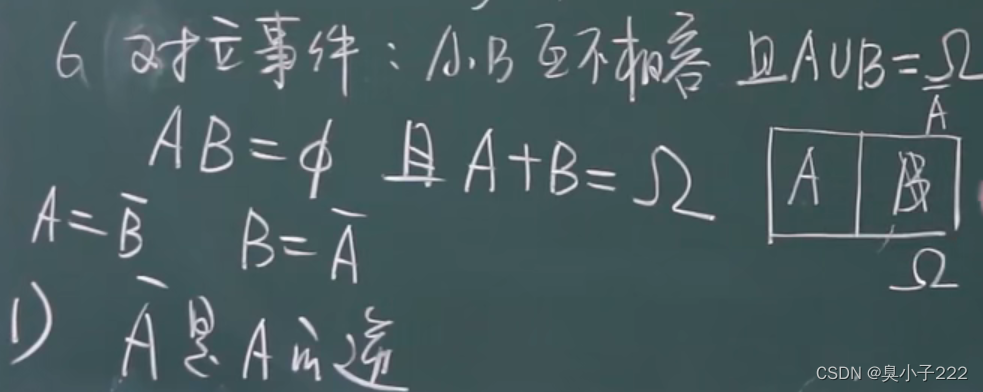 6 对立事件：A、B互不相容 且A∪B=Ω
AB=ϕ 且A+B=Ω
A̅
A B
Ω
A=B̅ B=A̅
1) A̅是A的逆
CSDN @臭小子222